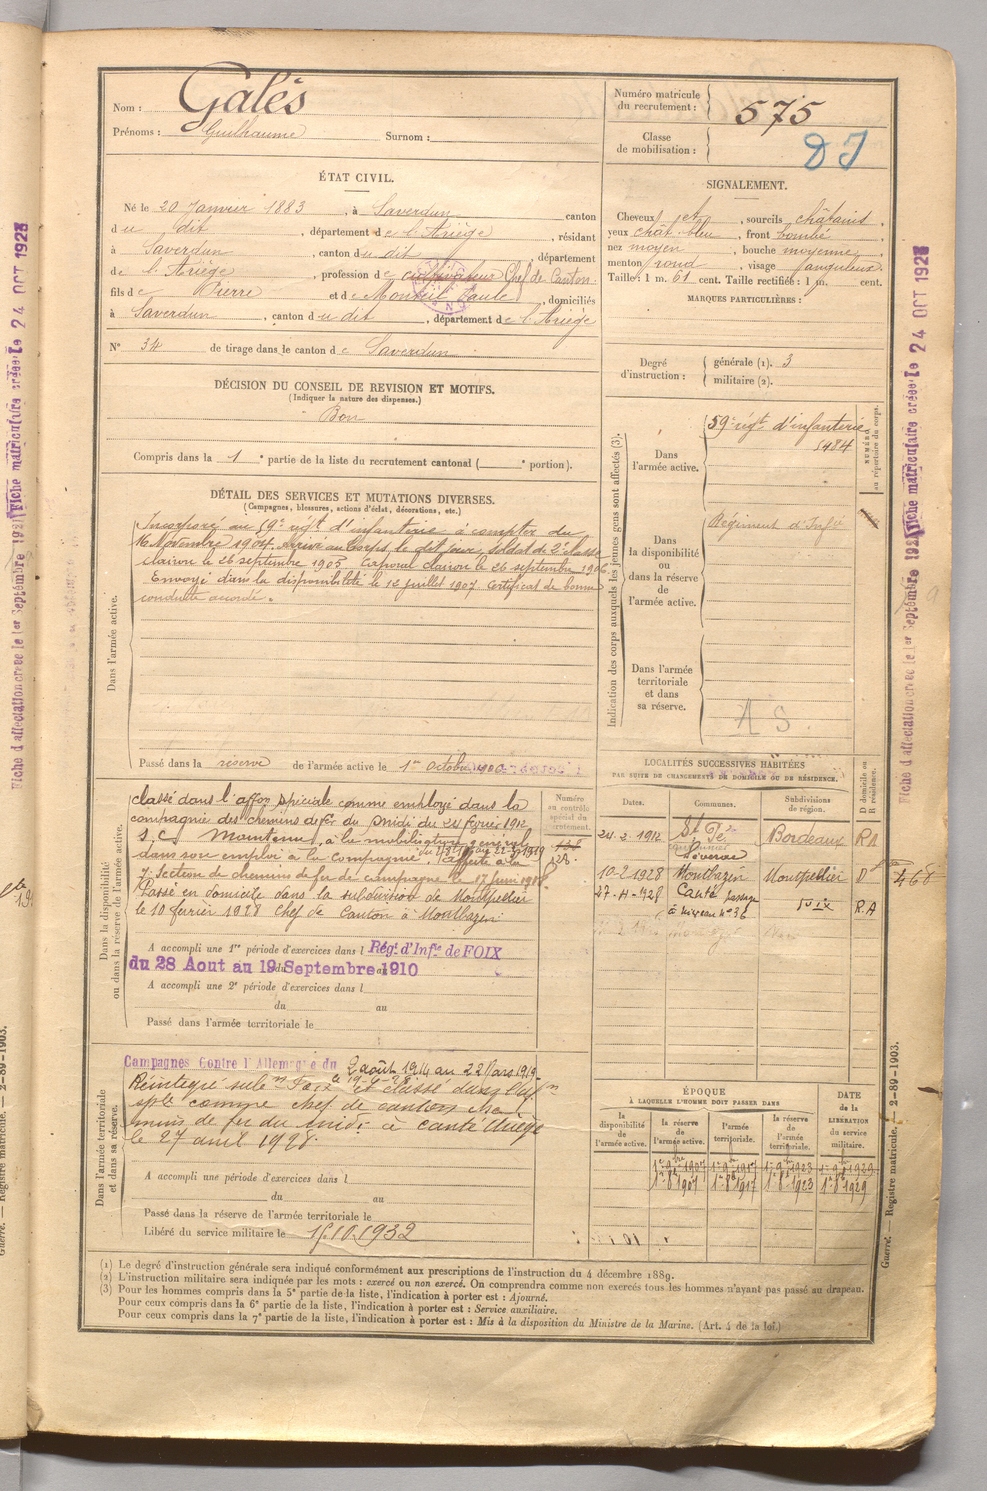 Nom : Galés
Prénoms : Guilhaume Surnom :
Numéro matricule du recrutement : 575
Classe de mobilisation :
ÉTAT CIVIL.
Né le 20 Janvier 1883, à Saverdun canton
du dit, département de l'Ariège, résidant
à Saverdun, canton du dit, département
de l'Ariège, profession de cultivateur Chef de Canton
fils de Pierre et de Paule, domiciliés
à Saverdun, canton du dit, département de l'Ariège
N° 34 de tirage dans le canton de Saverdun
SIGNALEMENT.
Cheveux et, sourcils châtains,
yeux chât. bleu, front bombé
nez moyen, bouche moyenne,
menton rond, visage sanguleux
Taille : 1 m. 61 cent. Taille rectifiée : 1 m. cent.
MARQUES PARTICULIÈRES :
Degré d'instruction : générale (1). 3
militaire (2).
DÉCISION DU CONSEIL DE REVISION ET MOTIFS.
(Indiquer la nature des dispenses.)
Bon
Compris dans la 1e partie de la liste du recrutement cantonal ( e portion).
DÉTAIL DES SERVICES ET MUTATIONS DIVERSES.
(Campagnes, blessures, actions d'éclat, décorations, etc.)
Dans l'armée active.
Incorporé au 59e régt d'infanterie à compter du
16 Novembre 1904. Arrivé au Corps le dit jour, Soldat de 2e classe
clairon le 26 septembre 1905. Caporal clairon le 26 septembre 1906.
Envoyé dans la disponibilité le 12 juillet 1907. Certificat de bonne
conduite accordé.
Passé dans la réserve de l'armée active le 1er Octobre
Indication des corps auxquels les jeunes gens sont affectés (3).
NUMÉRO au répertoire du corps.
Dans l'armée active. 59e régt d'infanterie
5484
Dans la disponibilité ou dans la réserve de l'armée active. Régiment d'Infie
Dans l'armée territoriale et dans sa réserve. A S
Dans la disponibilité ou dans la réserve de l'armée active.
Numéro au contrôle spécial du recrutement.
128
classé dans l'affon spéciale comme employé dans la
compagnie des chemins de fer du midi du 24 février 1912
S.C Maintenu, à la mobilisation générale
dans son emploi à la Compagnie. affecté à la
7e Section de chemins de fer de campagne le 17 juin 1918.
Passé en domicile dans la subdivision de Montpellier
le 10 février 1928 Chef de Canton à Montbazin
A accompli une 1re période d'exercices dans l Régt d'Infie de FOIX
du 28 Aout au 19 Septembre 1910
A accompli une 2e période d'exercices dans l
du au
Passé dans l'armée territoriale le
LOCALITÉS SUCCESSIVES HABITÉES
PAR SUITE DE CHANGEMENTS DE DOMICILE OU DE RÉSIDENCE.
Dates. Communes. Subdivisions de région. D domicile ou R résidence.
24-2-1912 Bordeaux RA
10-2-1928 Montbazin Montpellier D 468
27-4-928 Canté passage à niveau n° 36 R.A
Dans l'armée territoriale et dans sa réserve.
Campagnes Contre l'Allemagne du 2 août 1914 au 22 Mars 1919
Réintégré subon Foix et classé dans l'aff
sple comme chef de canton
mins de fer du midi à Canté Ariège
le 27 avril 1928.
A accompli une période d'exercices dans l
du au
Passé dans la réserve de l'armée territoriale le
Libéré du service militaire le 15.10.1932
ÉPOQUE
À LAQUELLE L'HOMME DOIT PASSER DANS
la disponibilité de l'armée active. la réserve de l'armée active. l'armée territoriale. la réserve de l'armée territoriale. DATE de la LIBÉRATION du service militaire.
1er 9bre 1907 1er 9bre 1917 1er 9bre 1923 1er 9bre 1929
1er 8bre 1907 1er 8bre 1917 1er 8bre 1923 1er 8bre 1929
(1) Le degré d'instruction générale sera indiqué conformément aux prescriptions de l'instruction du 4 décembre 1889.
(2) L'instruction militaire sera indiquée par les mots : exercé ou non exercé. On comprendra comme non exercés tous les hommes n'ayant pas passé au drapeau.
(3) Pour les hommes compris dans la 5e partie de la liste, l'indication à porter est : Ajourné.
Pour ceux compris dans la 6e partie de la liste, l'indication à porter est : Service auxiliaire.
Pour ceux compris dans la 7e partie de la liste, l'indication à porter est : Mis à la disposition du Ministre de la Marine. (Art. 4 de la loi.)
Guerre. — Registre matricule. — 2-89-1903.
Fiche d'affectation créée le 1er Septembre 1921
Fiche matriculaire créée le 24 OCT 1928